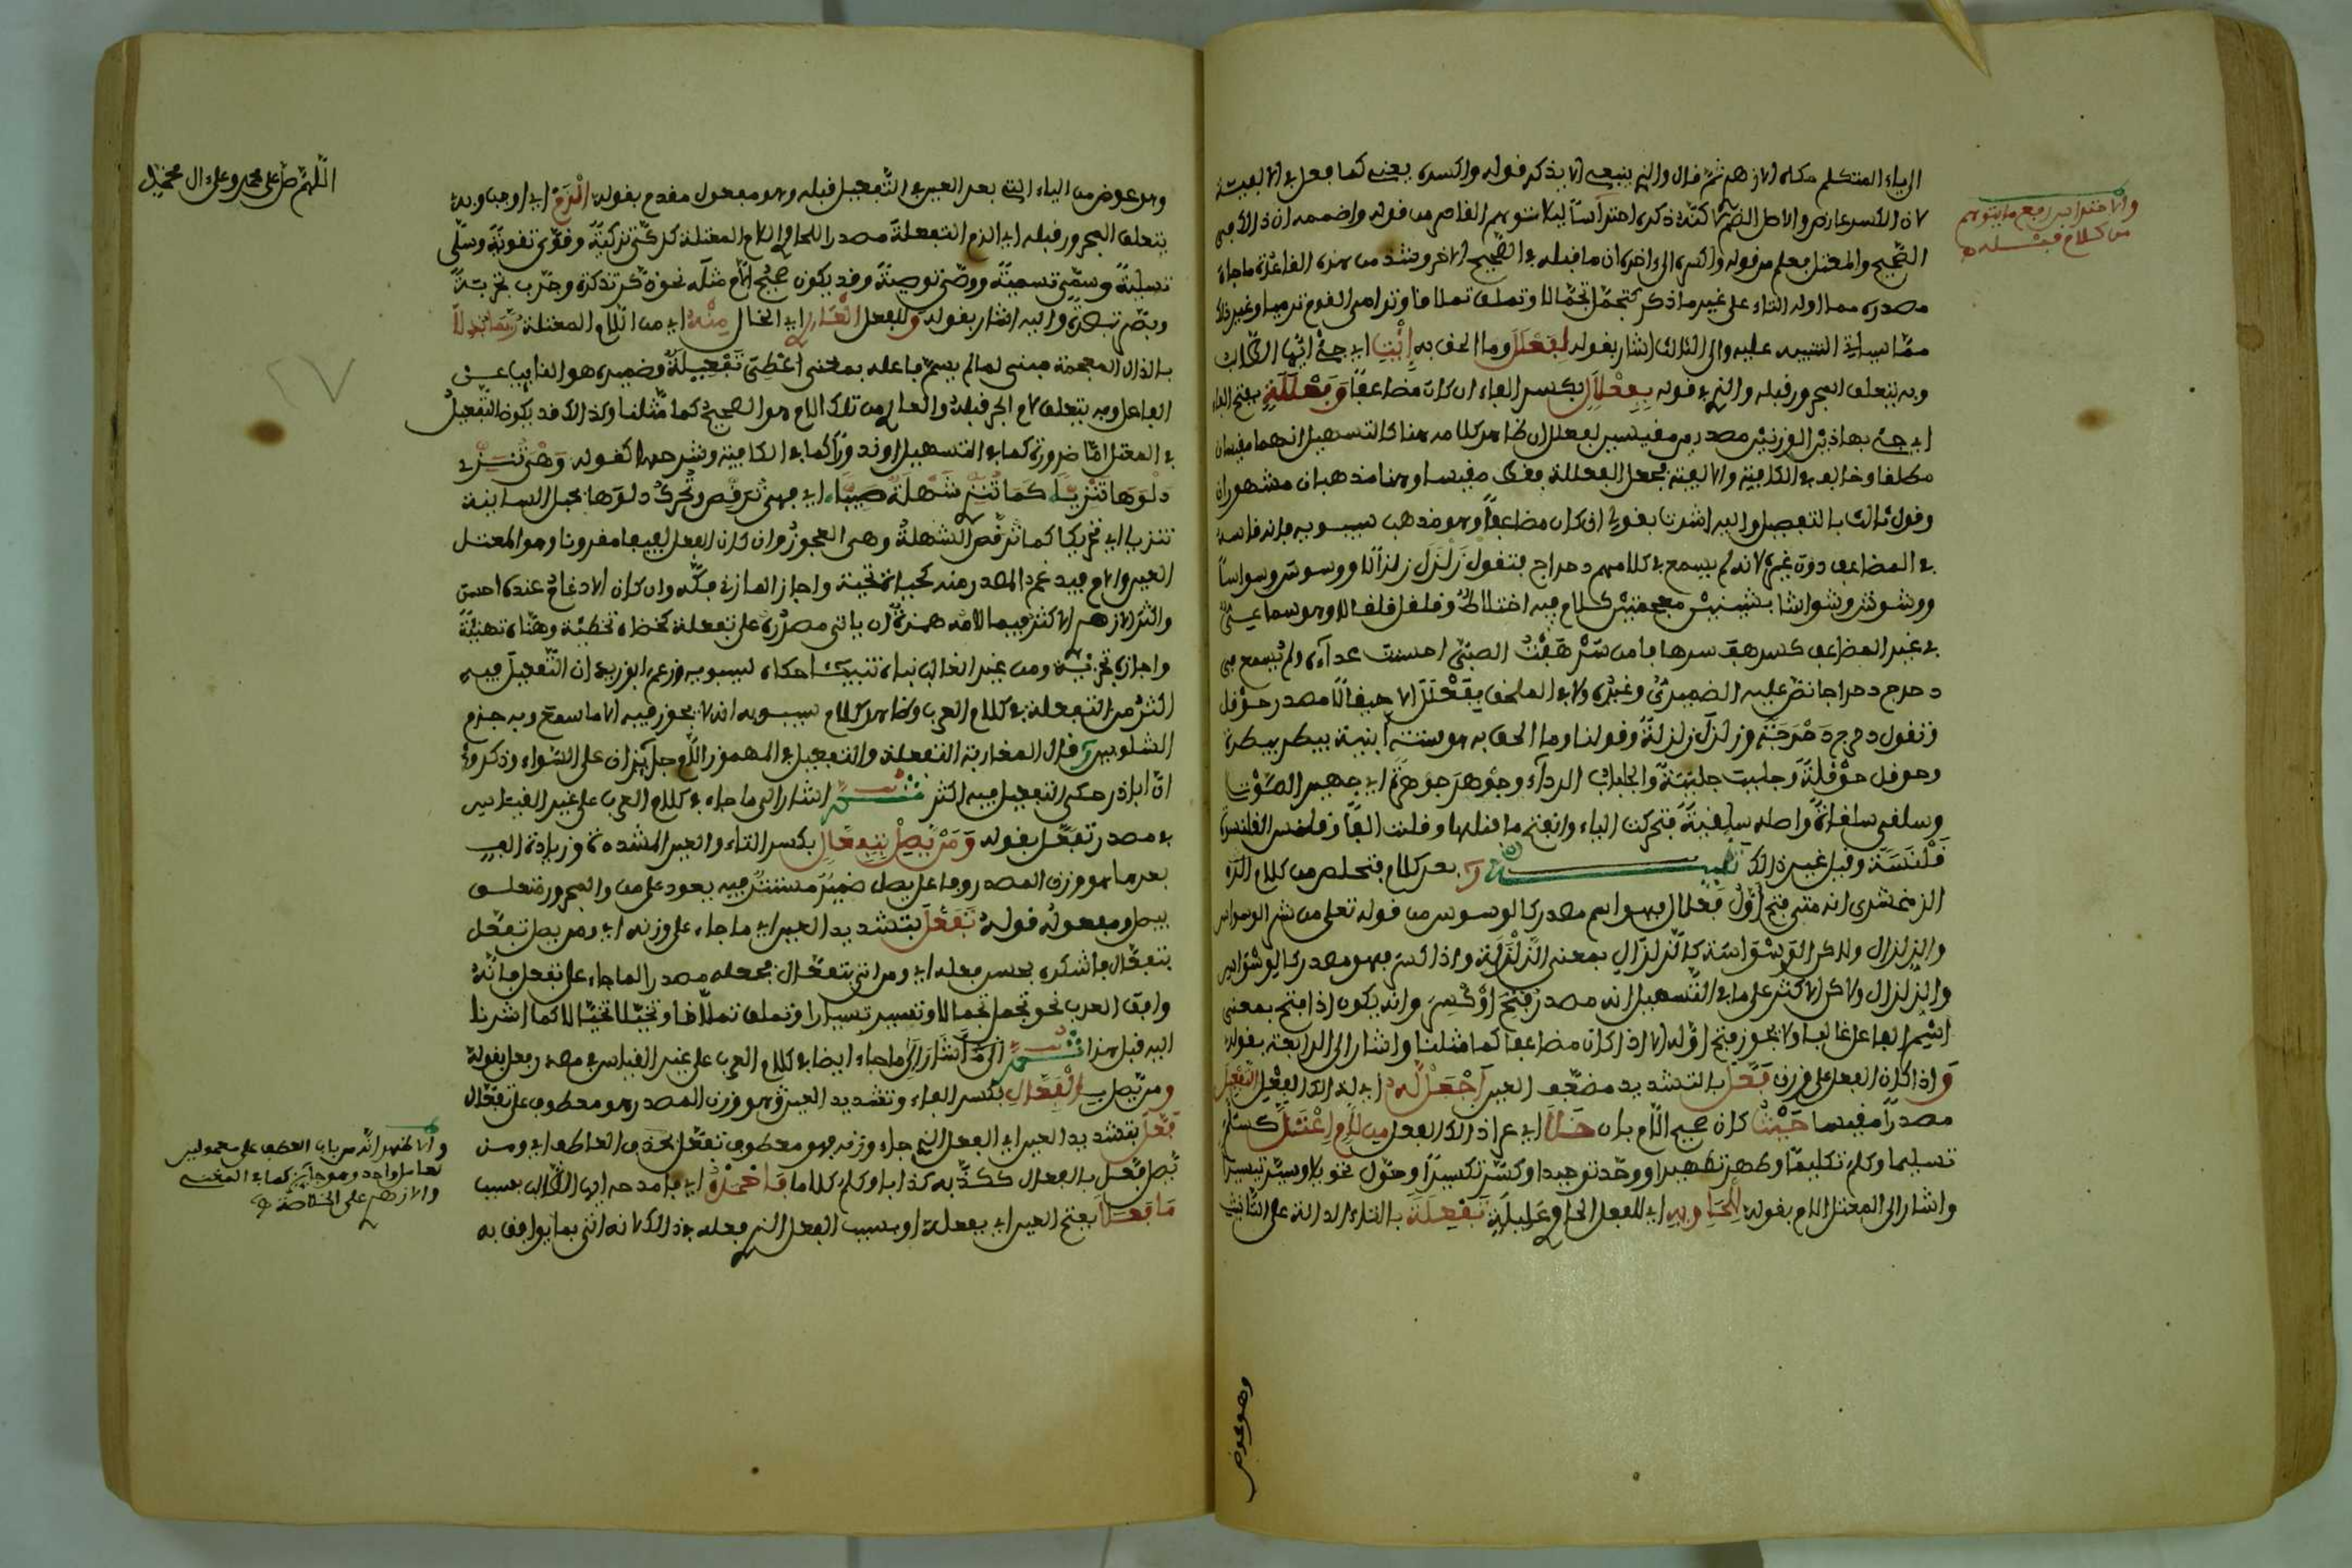 الى ياء المتكلم حكاه الازهر ثم قال والذي ينبغي الا يذكر قوله واكسره يعني كما فعل في الالفية
لان الكسر عارض والاصل الضم
الصحيح والمعتل يعلم من قوله واكسره الى اخره ان ما قبله في الصحيح الاخر وشذ من هذه القاعدة ما جاء
مصدره مما اوله التاء على غير ما ذكر كتجمل تجمالا وتملق تملاقا وترامى القوم رميا وغير ذلك
مما سياتي التنبيه عليه والى الثالث اشار بقوله لفعلل وما الحق به إئت اي جئ ايها الطالب
وبه يتعلق المجرور قبله والذي في قوله بفعلال بكسر الفاء ان كان مضاعفا وفعللة بفتح الفاء
اي جئ بهاذين الوزنين مصدرين مقيسين لفعلل ان ظاهر كلامه هنا كالتسهيل انهما مقيسان
مطلقا وخالف في الكافية والالفية فجعل الفعللة فقط مقيسا وهنا مذهبان مشهوران
وقول ثالث بالتفصيل واليه اشرت بقولي ان كان مضاعفا وهو مذهب سيبويه فانه قاسه
في المضاعف دون غيره لانه لم يسمع في كلامهم دحراج فتقول زلزل زلزالا ووسوس وسواسا
ووشوش وشواشا بشينين معجمتين كلام فيه اختلاط وقلقل قلقالا وهو سماعي
في غير المضاعف كسرهف سرهافا من سرهفت الصبي احسنت غذاءه ولم يسمع في
دحرج دحراجا نص عليه الضميري وغيره ولا في الملحق بفعلل الا حيقالا مصدر حوقل
وتقول دحرج دحرجة وزلزل زلزلة وقولنا وما الحق به هو ستة ابنية بيطر بيطرة
وحوقل حوقلة وجلبب جلببة والجلباب الرداء وجوهر جوهرة اي جهير الصوت
وسلقى سلقاة واصله سلقية تحركت الياء وانفتح ما قبلها وقلبت الفا وقلنس القلنسوة
قلنسة وقيل غير ذالك تنبيه بعد كلام فتحلص من كلام
الزمخشري انه متى فتح اول فعلال فهو اسم مصدر كالوسوس من قوله تعلى من شر الوسواس
والزلزال وذكر الوسواسة كالزلزال بمعنى الزلزلة واذا كسر فهو مصدر كالوسواس
والزلزال وذكر الاكثر على ما في التسهيل انه مصدر فتح او كسر وانه يكون اذا فتح بمعنى
اسم الفاعل غالبا ولا يجوز فتح اوله الا اذا كان مضاعفا كما مثلنا واشار الى الرابعة بقوله
واذا كان الفعل على وزن فعل بالتشديد مضعف العين اجعل له اي لذالك الفعل التفعيل
مصدرا مقيسا حيث كان صحيح اللام بان خلا اي عر اذ ذالك الفعل من لام اعتل كسلم
تسليما وكلم تكليما وطهر تطهيرا ووحد توحيدا وكسر تكسيرا وحول تحويلا ويسر تيسيرا
واشار الى المعتل اللام بقوله للحاويه اي للفعل الحاوي عليلة تفعلة بالتاء الدالة على التانيث
والاحتراس رفع ما يتوهم
من كلام قبله
وهو عوض
وهو عوض من الياء التي بعد العين في التفعيل قبله وهو مفعول مقدم بقوله الزم اي اوجب وبه
يتعلق المجرور قبله اي الزم التفعلة مصدرا للحاوي اللام المعتلة كزكى تزكية وقوى تقوية وسلى
تسلية وسمى تسمية ووصى توصية وقد يكون صحيح اللام مثله نحو ذكر تذكرة وجرب تجربة
وبصر تبصرة واليه اشار بقوله وللفعل العار اي الخال منه اي من اللام المعتلة ربما بذلا
بالذال المعجمة مبني لما لم يسم فاعله بمعنى اعطي تفعلة وضميره هو النايب عن
الفاعل وبه يتعلق لام الجر قبله والخال من تلك اللام هو الصحيح كما مثلنا وكذالك قد يكون التفعيل
في المعتل اما ضرورة كما في التسهيل او ندورا كما في الكافية وشرحها كقوله وهي تنزي
دلوها تنزيا كما تنزي شهلة صبيا اي فهي ترقص وتحرك دلوها
تنزيا اي تحريكا كما ترقص الشهلة وهي العجوز وان كان الفعل لفيفا مقرونا وهو المعتل
العين واللام
واكثر الازهر الاكثر فيما لامه همزة ان ياتي مصدره على تفعلة كخطاه تخطئة وهناه تهنئة
واجزاه تجزئة ومن غير الغالب نباه تنبيئا حكاه سيبويه وزعم ابو زيد ان التفعيل فيه
اكثر من التفعلة في كلام العرب وظاهر كلام سيبويه انه لا يجوز فيه الا ما سمع وبه جزم
الشلوبين وقال المغاربة التفعلة والتفعيل في المهموز اللام جايزان على السواء وذكروا
ان ابا زيد حكى التفعيل فيه اكثر تنبيه اشار الى ما جاء في كلام العرب على غير القياس
في مصدر تفعل بقوله ومن يصل بتفعال بكسر التاء والعين المشددة وزيادة الف
بعدها هو وزن المصدر وفاعل يصل ضمير مستتر فيه يعود على من والمجرور متعلق
بيصل ومفعوله قوله تفعل بتشديد العين اي ما جاء على وزنه اي ومن يصل تفعل
بتفعال فاشكره بحسن فعله اي ومن اتى بتفعال فجعله مصدرا لما جاء على تفعل فانه
وافق العرب نحو تجمل تجمالا وتملق تملاقا كما اشرنا
اليه قبل هذا ثم اشار الى ما جاء ايضا في كلام العرب على غير القياس في مصدر فعل بقوله
ومن يصل بالفعال بكسر الفاء وتشديد العين وهو وزن المصدر وهو معطوف على تفعال
فعل بتشديد العين اي الفعل الذي جاء وزنه فهو معطوف تفعل بحذف العاطف اي ومن
يصل فعل بالفعال ككذب كذابا وكلم كلاما فاحمده اي فامدحه ايها الطالب بسبب
ما فعلا بفتح العين اي بفعله او بسبب الفعل الذي فعله في ذالك لانه اتى بما يوافق به
اللهم صل على محمد وعلى ال محمد
والاظهر انه من باب العطف على معمولي
عامل واحد وهو جايز كما في المغني
والازهر على الخلاصة